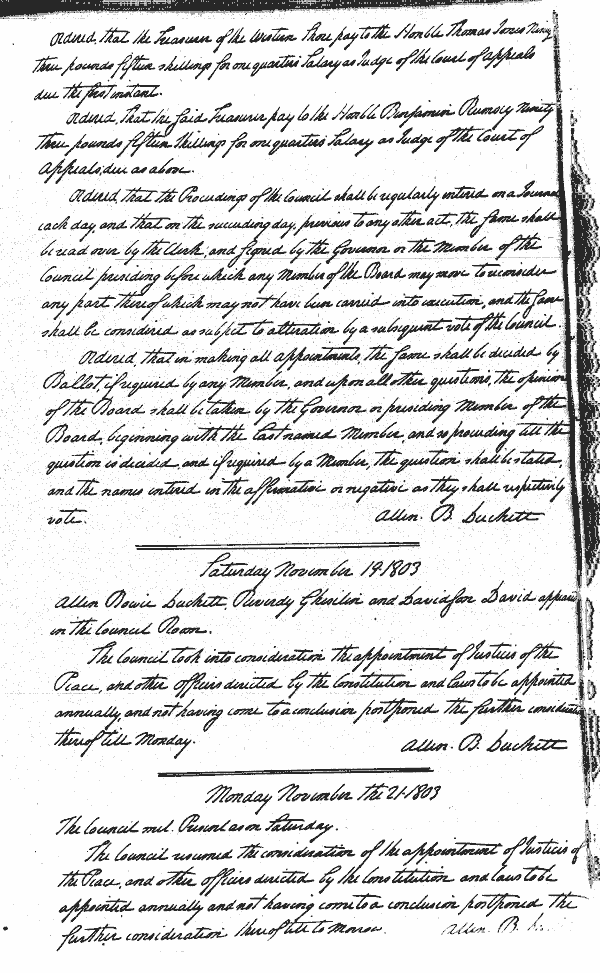 Ordered, that the Treasurer of the Western Shore pay to the Honble Thomas Jones Ninety
three pounds fifteen shillings for one quarters Salary as Judge of the Court of appeals
due the first instant.
Ordered, That the said Treasurer pay to the Honble Benjamin Rumsey Ninety
three pounds fifteen Shillings for one quarters Salary as Judge of the Court of
Appeals, due as above.
Ordered, that the Proceedings of the Council shall be regularly entered on a Journal
each day, and that on the succeeding day, previous to any other act, the same shall
be read over by the Clerk, and signed by the Governor or the Member of the
Council presiding before which any Member of the Board may move to reconsider
any part thereof which may not have been carried into execution, and the same
shall be considered as subject to alteration by a subsequent vote of the Council.
Ordered, that in making all appointments, the same shall be decided by
Ballot, if required by any Member, and upon all other questions, the opinion
of the Board shall be taken by the Governor or presiding Member of the
Board, beginning with the last named Member, and so proceeding till the
question is decided, and if required by a Member, the question shall be stated,
and the names entered in the affirmative or negative as they shall respectively
vote. Allen. B. Duckett
Saturday November 19. 1803
Allen Bowie Duckett, Reverdy Ghiselin and Davidson David appeared
in the Council Room.
The Council took into consideration the appointment of Justices of the
Peace, and other officers directed by the Constitution and Laws to be appointed
annually, and not having come to a conclusion postponed the further consideration
thereof till Monday. Allen. B. Duckett
Monday November the 21. 1803
The Council met. Present as on Saturday.
The Council resumed the consideration of the appointment of Justices of
the Peace, and other officers directed by the Constitution and Laws to be
appointed annually and not having come to a conclusion postponed the
further consideration thereof till to morrow. Allen. B.